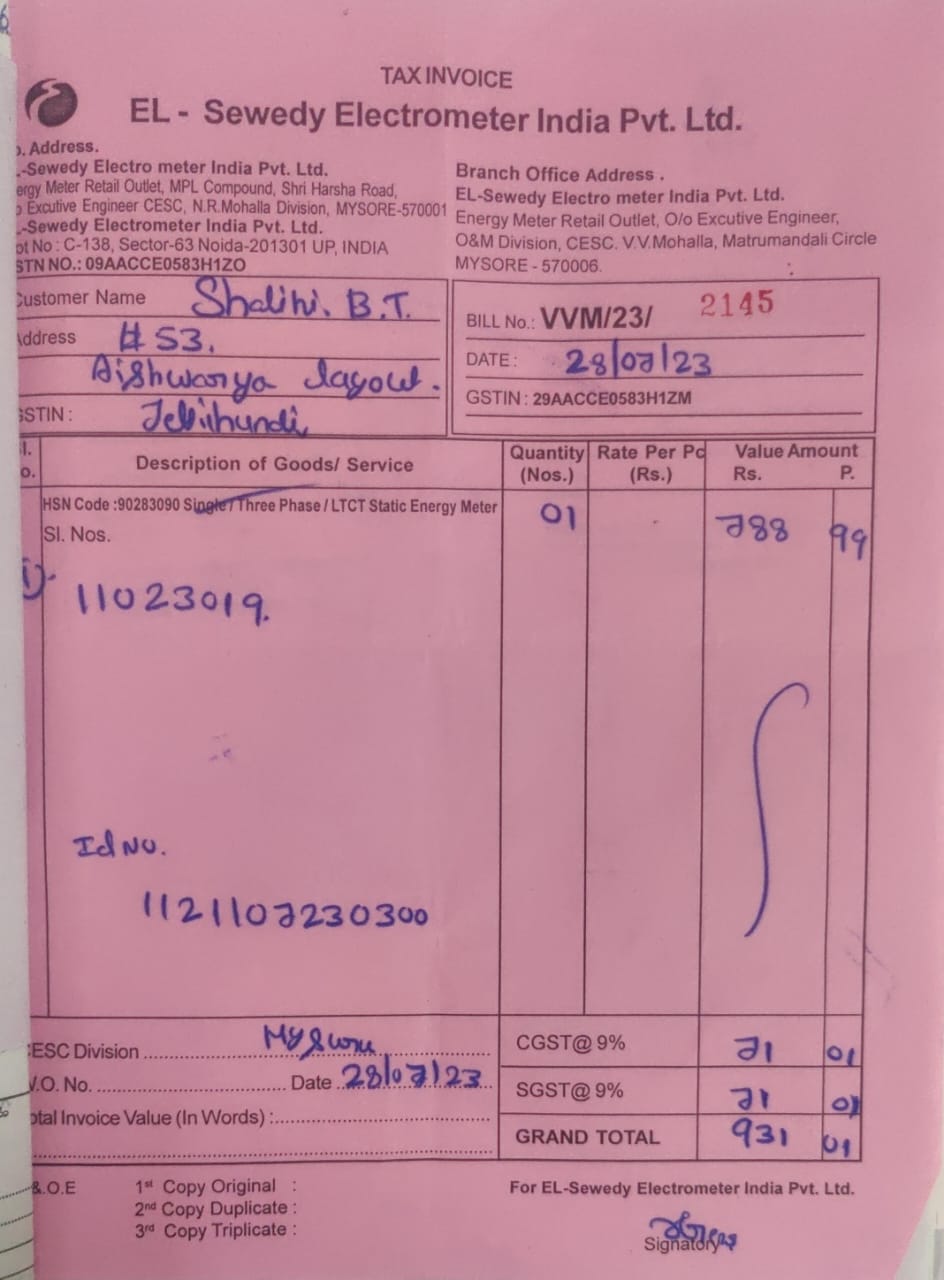 TAX INVOICE
EL - Sewedy Electrometer India Pvt. Ltd.
. Address.
-Sewedy Electro meter India Pvt. Ltd.
ergy Meter Retail Outlet, MPL Compound, Shri Harsha Road,
Excutive Engineer CESC, N.R.Mohalla Division, MYSORE-570001
-Sewedy Electrometer India Pvt. Ltd.
ot No : C-138, Sector-63 Noida-201301 UP, INDIA
STN NO.: 09AACCE0583H1ZO
Branch Office Address .
EL-Sewedy Electro meter India Pvt. Ltd.
Energy Meter Retail Outlet, O/o Excutive Engineer,
O&M Division, CESC. V.V.Mohalla, Matrumandali Circle
MYSORE - 570006.
Customer Name Shalini. B.T.
Address # 53.
Aishwarya layout.
GSTIN :
BILL No.: VVM/23/ 2145
DATE : 28/07/23
GSTIN : 29AACCE0583H1ZM
l. o. Description of Goods/ Service Quantity (Nos.) Rate Per Pc (Rs.) Value Amount Rs. P.
HSN Code :90283090 Single / Three Phase / LTCT Static Energy Meter 01 788 99
Sl. Nos.
1) 11023019.
Id No.
1121107230300
CESC Division Mysore CGST@ 9% 71 01
W.O. No. Date 28/07/23 SGST@ 9% 71 01
otal Invoice Value (In Words) : GRAND TOTAL 931 01
&.O.E
1st Copy Original :
2nd Copy Duplicate :
3rd Copy Triplicate :
For EL-Sewedy Electrometer India Pvt. Ltd.
Signatory